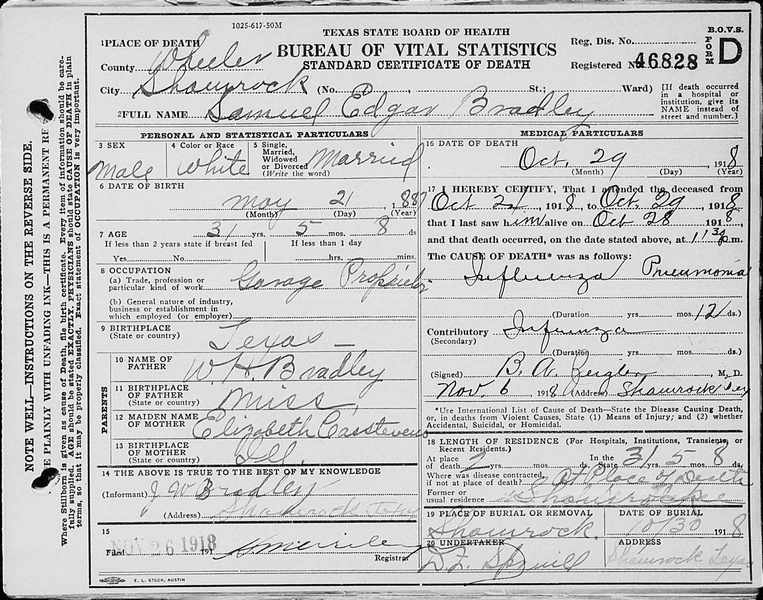 1025-617-50M
TEXAS STATE BOARD OF HEALTH
BUREAU OF VITAL STATISTICS
STANDARD CERTIFICATE OF DEATH
B.O.V.S.
FORM D
Reg. Dis. No.
Registered No. 46828
1 PLACE OF DEATH
County Wheeler
City Shamrock (No. , St.; Ward)
[If death occurred in a hospital or institution, give its NAME instead of street and number.]
2 FULL NAME Samuel Edgar Bradley
PERSONAL AND STATISTICAL PARTICULARS
3 SEX Male
4 Color or Race White
5 Single, Married, Widowed or Divorced (Write the word) Married
6 DATE OF BIRTH
May 21, 1887
(Month) (Day) (Year)
7 AGE 31 yrs. 5 mos. 8 ds
If less than 2 years state if breast fed
Yes No
If less than 1 day
hrs. mins.
8 OCCUPATION
(a) Trade, profession or particular kind of work Garage Proprietor
(b) General nature of industry, business or establishment in which employed (or employer)
9 BIRTHPLACE
(State or country) Texas
PARENTS
10 NAME OF FATHER W.H. Bradley
11 BIRTHPLACE OF FATHER
(State or country) Miss.
12 MAIDEN NAME OF MOTHER Elizabeth Casstevens
13 BIRTHPLACE OF MOTHER
(State or country) Ill.
14 THE ABOVE IS TRUE TO THE BEST OF MY KNOWLEDGE
(Informant) J W Bradley
(Address) Shamrock
15
Filed NOV 26 1918 191
Registrar
E. L. STECK, AUSTIN
MEDICAL PARTICULARS
16 DATE OF DEATH
Oct. 29 1918
(Month) (Day) (Year)
17 I HEREBY CERTIFY, That I attended the deceased from
Oct 21, 1918, to Oct. 29, 1918
that I last saw him alive on Oct 28 1918,
and that death occurred, on the date stated above, at 1:30 p.m.
The CAUSE OF DEATH* was as follows:
Influenza Pneumonia
(Duration yrs. mos. 12 ds.
Contributory Influenza
(Secondary)
(Duration yrs. mos. ds.)
(Signed) B. A. Zeigler, M, D.
Nov. 6 1918 (Address) Shamrock Tex
*Use International List of Cause of Death—State the Disease Causing Death, or, in deaths from Violent Causes, State (1) Means of Injury; and (2) whether Accidental, Suicidal, or Homicidal.
18 LENGTH OF RESIDENCE (For Hospitals, Institutions, Transients, or Recent Residents.)
At place of death 2 yrs. mos. ds. In the State 31 yrs. 5 mos. 8 ds.
Where was disease contracted, if not at place of death? At Place of Death
Former or usual residence
19 PLACE OF BURIAL OR REMOVAL Shamrock.
DATE OF BURIAL 10/30 1918
20 UNDERTAKER
ADDRESS Shamrock Texas
NOTE WELL—INSTRUCTIONS ON THE REVERSE SIDE.
E PLAINLY WITH UNFADING INK—THIS IS A PERMANENT RE
Where Stillborn is given as cause of Death, file birth certificate. Every item of information should be carefully supplied. AGE should be stated EXACTLY, PHYSICIANS should state CAUSE OF DEATH in plain terms, so that it may be properly classified. Exact statement of OCCUPATION is very important.